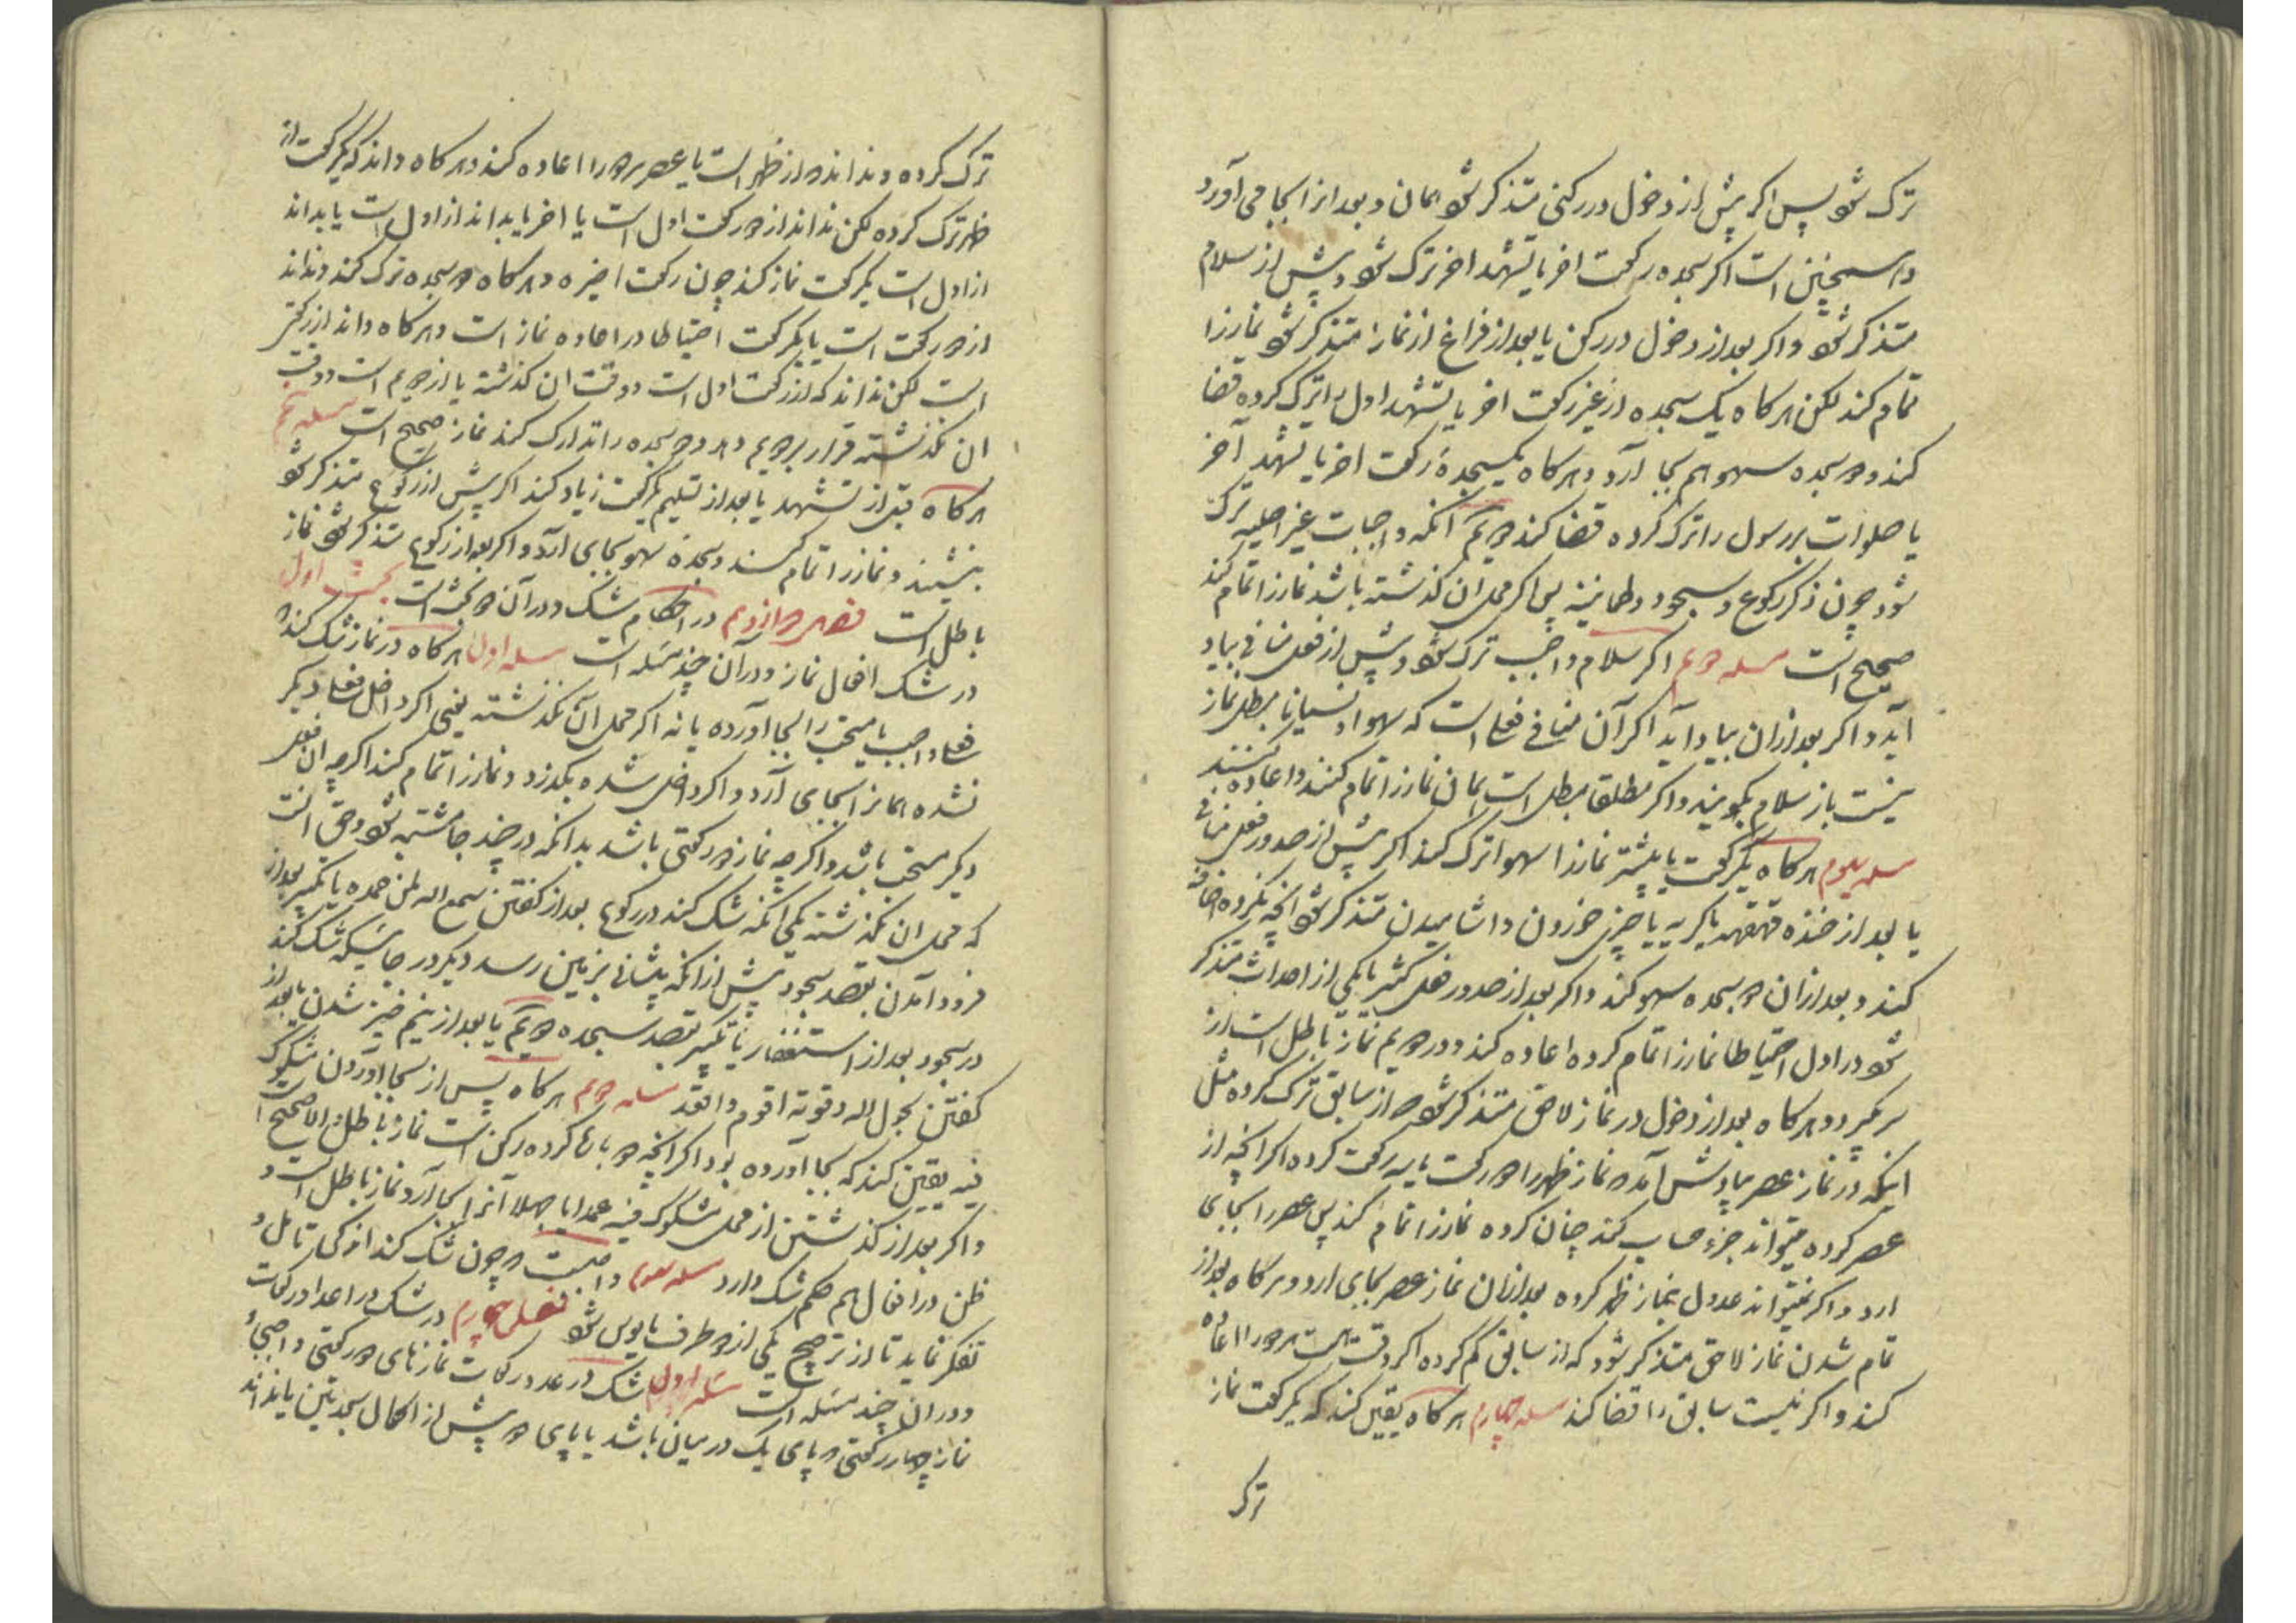 ترک شود پس اگر پیش از دخول در رکنی متذکر شود همان و بعد از انرا بجا می آورد
و همچنین است اگر سجده رکعت اخر یا تشهد اخر ترک شود و پیش از سلام
متذکر شود و اگر بعد از دخول در رکن یا بعد از فراغ از نماز متذکر شود نماز را
تمام کند لکن هرگاه یک سجده از غیر رکعت اخر یا تشهد اول را ترک کرده قضا
کند و دو سجده سهو هم بجا آرد و هرگاه یکسجده رکعت اخر یا تشهد آخر
یا صلوات بر رسول را ترک کرده قضا کند دویم آنکه واجبات غیر اصلیه ترک
شود چون ذکر رکوع و سجود و طمانینه پس اگر محل ان گذشته باشد نماز را تمام کند
صحیح است مسله دویم اگر سلام واجب ترک شود و پیش از فعل منافی بیاد
آید و اگر بعد از ان بیاد آید اگر آن منافی فعلی است که سهوا و نسیانا مبطل نماز
نیست باز سلام بگویند و اگر مطلقا مبطل است همان نماز را تمام کنند و اعاده کنند
مسله سیوم هرگاه یکرکعت یا بیشتر نماز را سهوا ترک کند اگر پیش از صدور فعل منافی
یا بعد از خنده قهقهه یا گریه یا چیزی خوردن و اشامیدن متذکر شود انچه نکرده اضافه
کند و بعد از ان دو سجده سهو کند و اگر بعد از صدور فعل کثیر یا یکی از احداث متذکر
شود در اول احتیاطا نماز را تمام کرده اعاده کند و در دویم نماز باطل است از
سر گیرد و هرگاه بعد از دخول در نماز لاحق متذکر شود از سابق ترک کرده مثل
اینکه در نماز عصر بیادش آمد نماز ظهر را دو رکعت یا سه رکعت کرده اگر انچه از
عصر کرده میتواند جزء حساب کند چنان کرده نماز را تمام کند پس عصر را بجای
ارد و اگر نمیتواند عدول بنماز ظهر کرده بعد از ان نماز عصر بجای ارد و هرگاه بعد از
تمام شدن نماز لاحق متذکر شود که از سابق کم کرده اگر وقت هست هر دو را اعاده
کند و اگر نیست سابق را قضا کند مسله چهارم هرگاه یقین کند که یکرکعت نماز
ترک
ترک کرده و نداند از ظهر است یا عصر هر دو را اعاده کند و هرگاه داند که یکرکعت از
ظهر ترک کرده لکن نداند از دو رکعت اول است یا اخر یا بداند از اول است یا بداند
از اول است یکرکعت نماز کند چون رکعت اخیره و هرگاه دو سجده ترک کند و نداند
از دو رکعت است یا یکرکعت احتیاطا در اعاده نماز است و هرگاه داند از رکعتی
است لکن نداند که از رکعت اول است و وقت ان گذشته یا از دویم است و وقت
ان نگذشته قرار بر دویم دهد و دو سجده را تدارک کند نماز صحیح است مسله پنجم
هرگاه قبل از تشهد یا بعد از تسلیم رکعت زیاد کند اگر پیش از رکوع متذکر شود
بنشیند و نماز را تمام کند و سجده سهو بجای آرد و اگر بعد از رکوع متذکر شود نماز
باطل است فصل دوازدهم در احکام شک و در آن دو بحث است بحث اول
در شک افعال نماز و در آن چند مسله است مسله اول هرگاه در نماز شک کند
فعل واجب یا مستحب را بجا آورده یا نه اگر محل آن نگذشته یعنی اگر داخل فعل دیگر
نشده همانرا بجای آرد و اگر داخل شده بگذرد و نماز را تمام کند اگر چه ان فعل
دیگر مستحب باشد و اگر چه نماز دو رکعتی باشد بدانکه در چند جا مشتبه شود و حق انست
که محل ان نگذشته یکی آنکه شک کند در رکوع بعد از گفتن سمع الله لمن حمده یا تکبیر بعد از
فرود آمدن بقصد سجود پیش از انکه پیشانی بزمین رسد دیگر در جائیکه شک کند
در سجود بعد از استغفار یا تکبیر بقصد سجده دویم یا بعد از نیم خیز شدن یا بعد از
گفتن بحول الله و قوته اقوم و اقعد مسله دویم هرگاه پس از بجا آوردن مشکوک
فیه یقین کند که بجا آورده بود اگر انچه دو باره کرده رکن است نماز باطل و الا صحیح است
و اگر بعد از گذشتن از محل مشکوک فیه عمدا یا جهلا آنرا بجا آرد نماز باطل است و
ظن در افعال هم حکم شک دارد مسله سیوم واجبست چون شک کند اندکی تامل و
تفکر نماید تا از ترجیح یکی از دو طرف مایوس شود فصل چهارم در شک در اعداد رکعات
و در ان چند مسله است مسله اول شک در عدد رکعات نمازهای دو رکعتی واجبی و
نماز چهار رکعتی پای یک در میان باشد یا پای دو پیش از اکمال سجدتین یا نداند